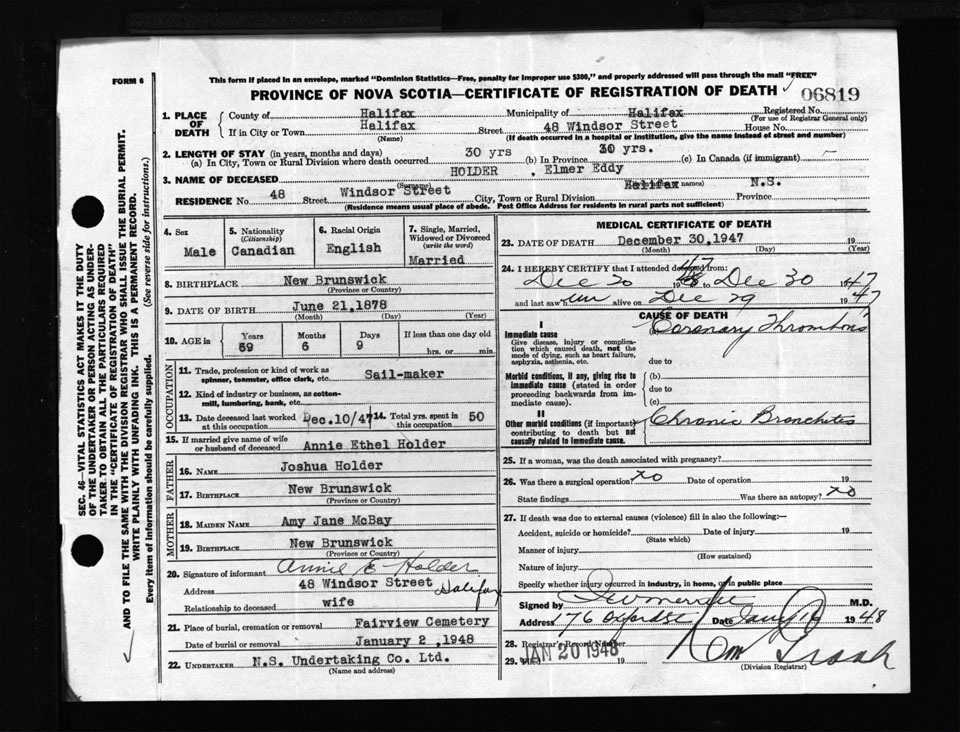 FORM 6
This form if placed in an envelope, marked "Dominion Statistics—Free, penalty for improper use $300," and properly addressed will pass through the mail "FREE"
PROVINCE OF NOVA SCOTIA—CERTIFICATE OF REGISTRATION OF DEATH
06819
1. PLACE OF DEATH
County of Halifax Municipality of Halifax Registered No.
(For use of Registrar General only)
If in City or Town Halifax Street 48 Windsor Street House No.
(Name) (If death occurred in a hospital or institution, give the name instead of street and number)
2. LENGTH OF STAY (in years, months and days)
(a) In City, Town or Rural Division where death occurred 30 yrs (b) In Province 30 yrs. (c) In Canada (if immigrant) —
3. NAME OF DECEASED HOLDER, Elmer Eddy
(Surname) names)
RESIDENCE No 48 Street Windsor Street City, Town or Rural Division Halifax Province N.S.
(Residence means usual place of abode. Post Office Address for residents in rural parts not sufficient)
4. Sex
Male
5. Nationality
(Citizenship)
Canadian
6. Racial Origin
English
7. Single, Married, Widowed or Divorced
(write the word)
Married
8. BIRTHPLACE New Brunswick
(Province or Country)
9. DATE OF BIRTH June 21, 1878
(Month) (Day) (Year)
10. AGE in
Years Months Days If less than one day old
69 6 9 hrs. or min.
OCCUPATION
11. Trade, profession or kind of work as spinner, teamster, office clerk, etc. Sail-maker
12. Kind of industry or business, as cotton-mill, lumbering, bank, etc.
13. Date deceased last worked at this occupation Dec.10/47
14. Total yrs. spent in this occupation 50
15. If married give name of wife or husband of deceased Annie Ethel Holder
FATHER
16. NAME Joshua Holder
17. BIRTHPLACE New Brunswick
(Province or Country)
MOTHER
18. MAIDEN NAME Amy Jane McBay
19. BIRTHPLACE New Brunswick
(Province or Country)
20. Signature of informant Annie E Holder
Address 48 Windsor Street Halifax
Relationship to deceased wife
21. Place of burial, cremation or removal Fairview Cemetery
Date of burial or removal January 2, 1948
22. UNDERTAKER N.S. Undertaking Co. Ltd.
(Name and address)
MEDICAL CERTIFICATE OF DEATH
23. DATE OF DEATH December 30, 1947 19
(Month) (Day) (Year)
24. I HEREBY CERTIFY that I attended deceased from:
Dec 20 47 to Dec 30 1947
and last saw him alive on Dec 29 1947
CAUSE OF DEATH
I
Immediate cause
Give disease, injury or complication which caused death, not the mode of dying, such as heart failure, asphyxia, asthenia, etc.
Coronary Thrombosis
due to
Morbid conditions, if any, giving rise to immediate cause (stated in order proceeding backwards from immediate cause).
(b)
due to
(c)
II
Other morbid conditions (if important) contributing to death but not causally related to immediate cause.
Chronic Bronchitis
25. If a woman, was the death associated with pregnancy?
26. Was there a surgical operation? no Date of operation 19
State findings Was there an autopsy? no
27. If death was due to external causes (violence) fill in also the following:—
Accident, suicide or homicide? Date of injury 19
(State which)
Manner of injury
(How sustained)
Nature of injury
Specify whether injury occurred in industry, in home, or in public place
Signed by M.D.
Address 76 Oxford St Date 1948
28. Registrar's Record Number
29. Filed 19
JAN 20 1948
(Division Registrar)
SEC. 46—VITAL STATISTICS ACT MAKES IT THE DUTY
OF THE UNDERTAKER OR PERSON ACTING AS UNDER-
TAKER TO OBTAIN ALL THE PARTICULARS REQUIRED
IN THE "CERTIFICATE OF REGISTRATION OF DEATH"
AND TO FILE THE SAME WITH THE DIVISION REGISTRAR WHO SHALL ISSUE THE BURIAL PERMIT.
WRITE PLAINLY WITH UNFADING INK. THIS IS A PERMANENT RECORD.
Every item of information should be carefully supplied. (See reverse side for instructions.)